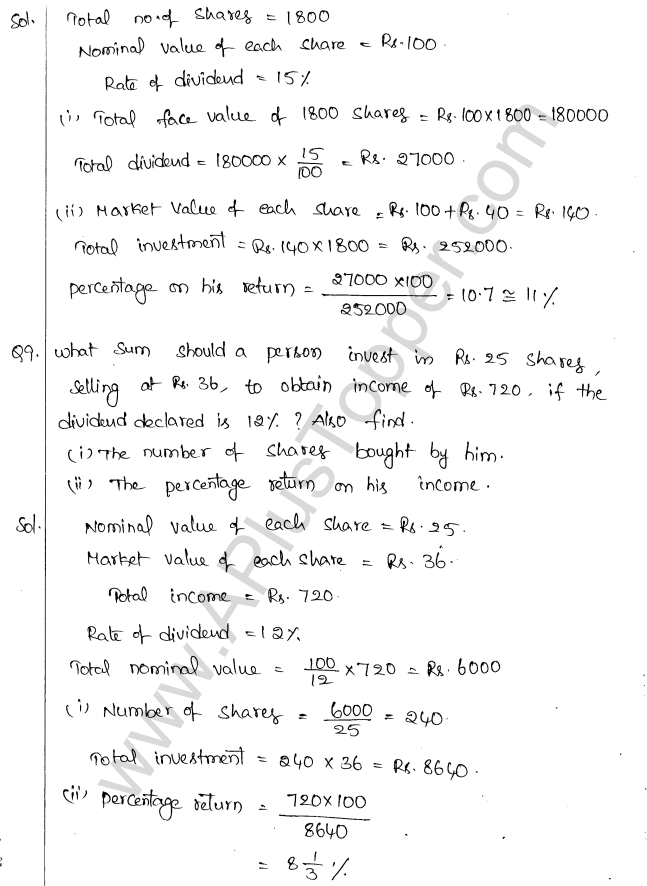 Sol. Total no. of shares = 1800
Nominal value of each share = Rs. 100.
Rate of dividend = 15%
(i) Total face value of 1800 shares = Rs. 100 x 1800 = 180000
Total dividend = 180000 x 15/100 = Rs. 27000.
(ii) Market Value of each share = Rs. 100 + Rs. 40 = Rs. 140.
Total investment = Rs. 140 x 1800 = Rs. 252000.
percentage on his return = 27000 x 100 / 252000 = 10.7 ≅ 11%
Q9. what sum should a person invest in Rs. 25 shares,
selling at Rs. 36, to obtain income of Rs. 720, if the
dividend declared is 12%? Also find.
(i) The number of shares bought by him.
(ii) The percentage return on his income.
Sol. Nominal value of each share = Rs. 25.
Market value of each share = Rs. 36.
Total income = Rs. 720.
Rate of dividend = 12%
Total nominal value = 100/12 x 720 = Rs. 6000
(i) Number of shares = 6000/25 = 240.
Total investment = 240 x 36 = Rs. 8640.
(ii) percentage return = 720 x 100 / 8640
= 8 1/3 %
www.APlusTopper.com